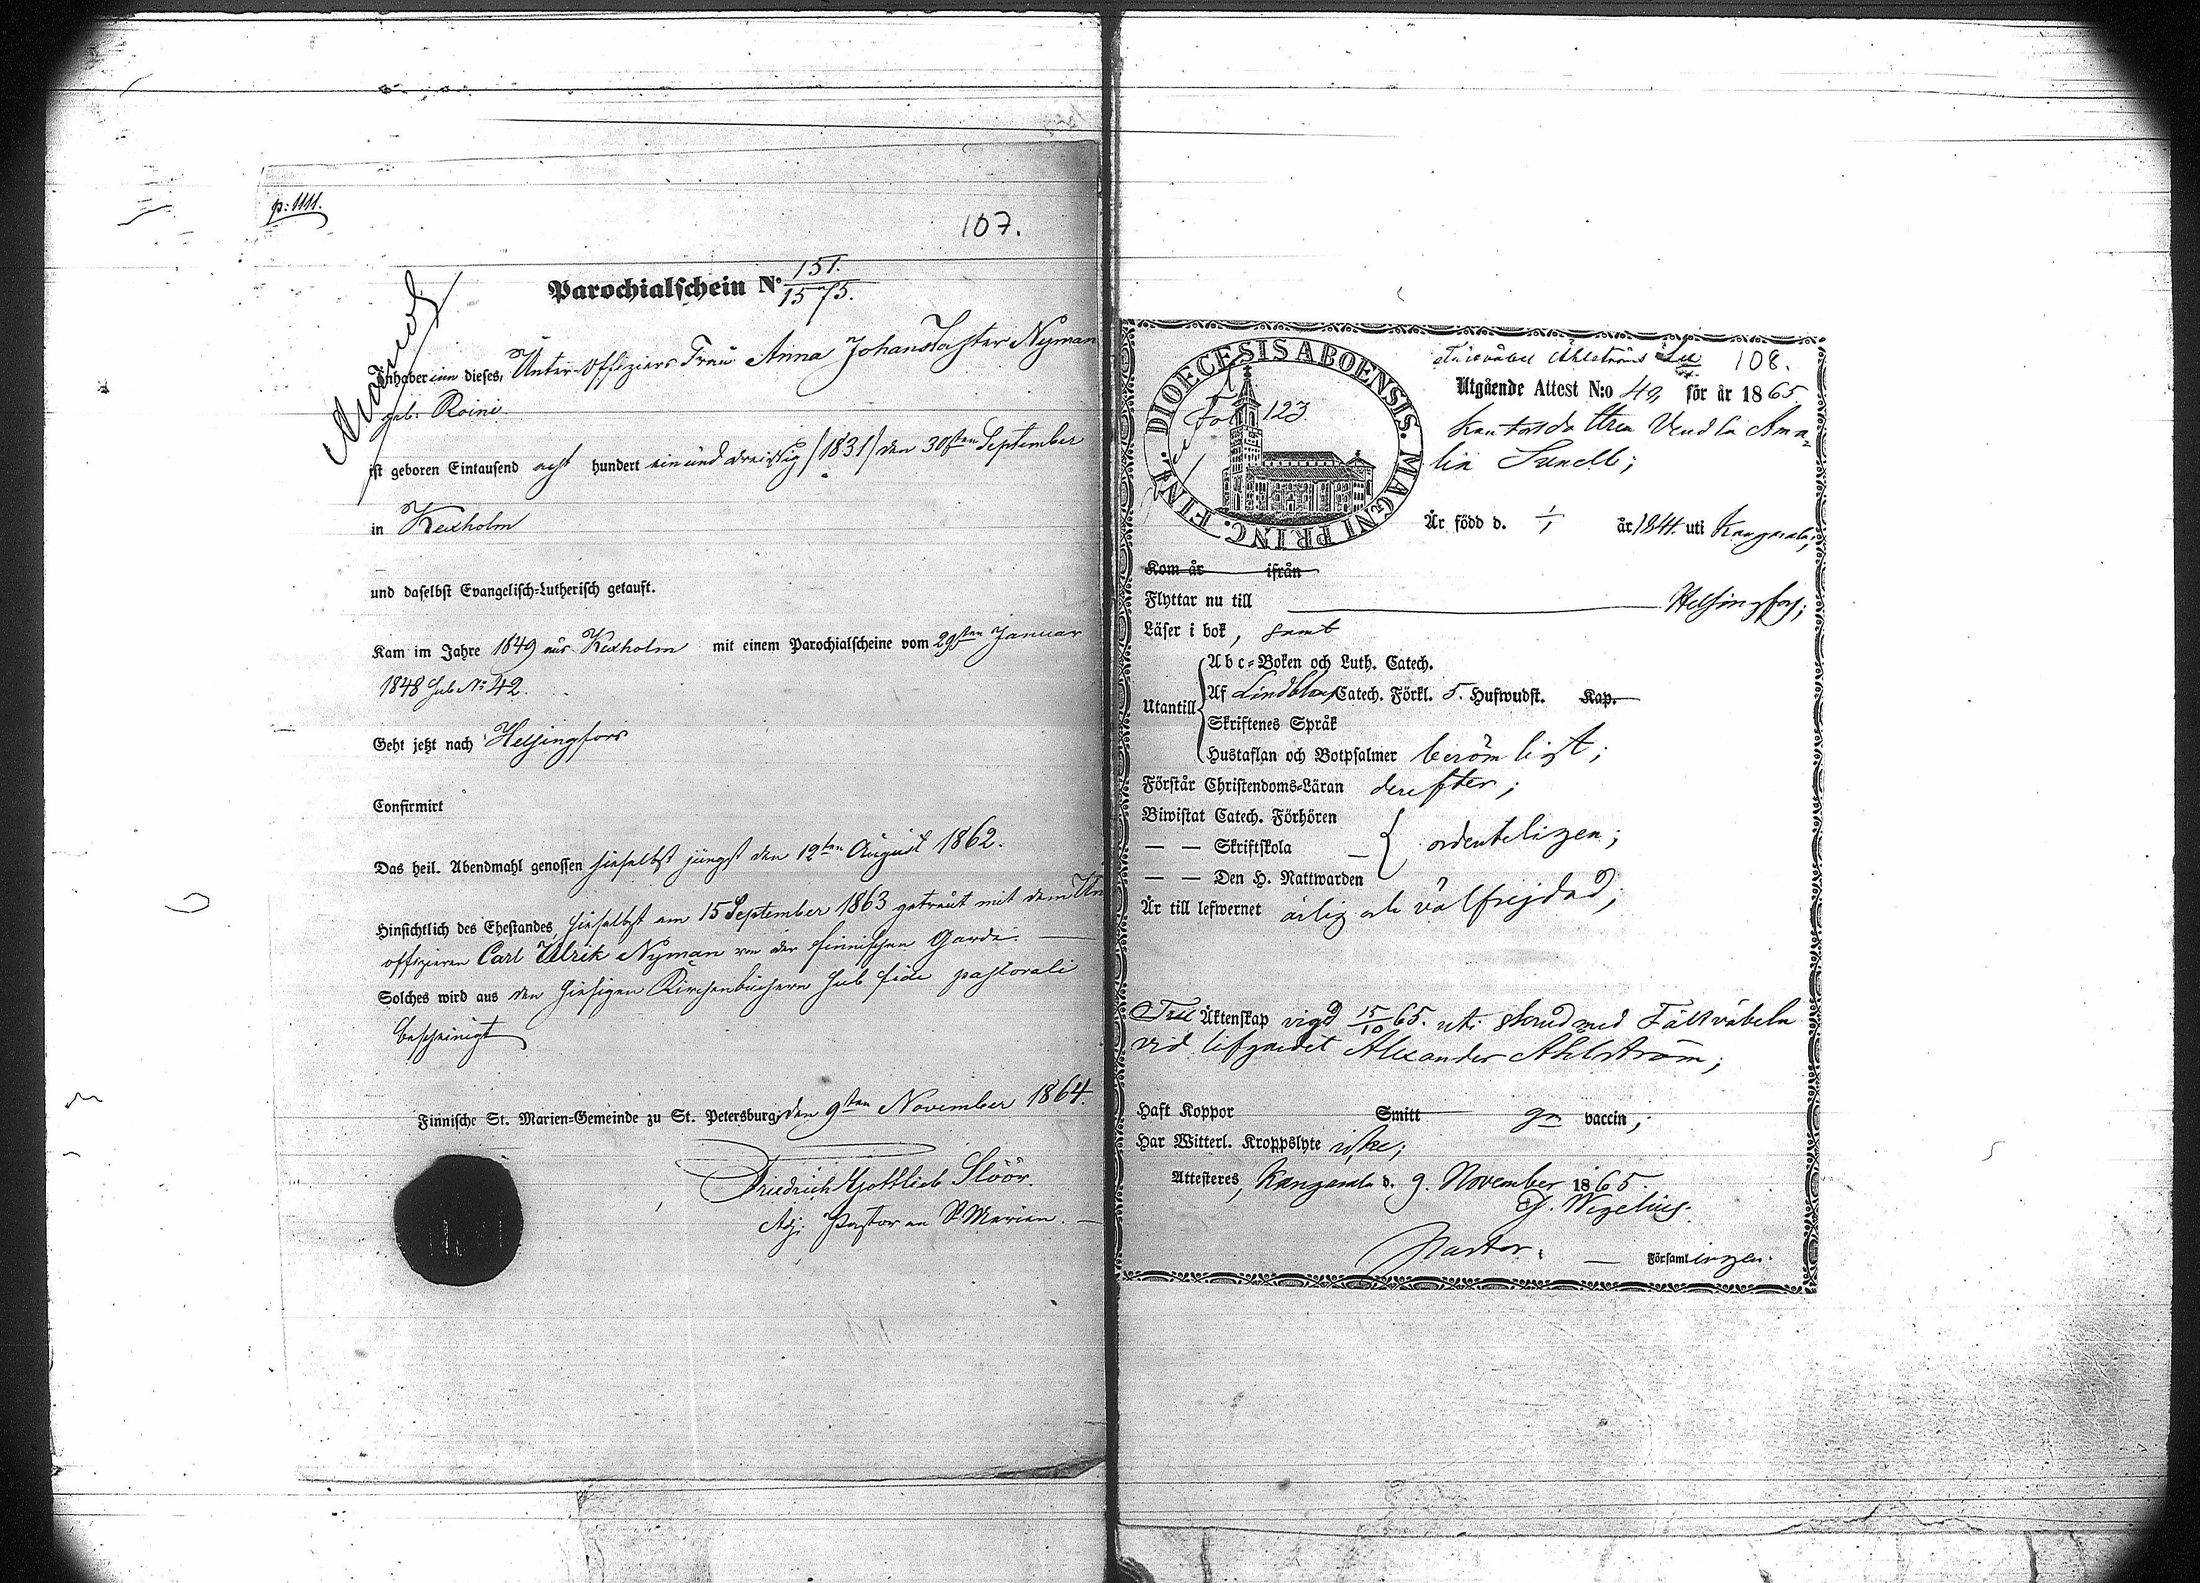 p: 1111.
107.
Parochialschein No 151. / 1575.
Inhaberinn dieses, Unter-Offiziers Frau Anna Johanstochter Nyman
geb. Roine.
ist geboren Eintausend acht hundert einund dreißig (1831) den 30sten September
in Kexholm
und daselbst Evangelisch-Lutherisch getauft.
Kam im Jahre 1849 aus Kexholm mit einem Parochialscheine vom 29sten Januar
1848 sub No 42.
Geht jetzt nach Helsingfors
Confirmirt
Das heil. Abendmahl genossen hieselbst jüngst den 12ten August 1862.
Hinsichtlich des Ehestandes, hieselbst am 15 September 1863 getraut mit dem Un
offizieren Carl Ulrik Nyman von der finnischen Garde.
Solches wird aus den hiesigen Kirchenbüchern sub fide pastorali
bescheinigt
Finnische St. Marien-Gemeinde zu St. Petersburg, den 9ten November 1864.
Friedrich Gottlieb Slöör.
Adj. Pastor an St Marien.
DIOECESIS ABOENSIS. MAGNI PRINC. FINL.
Fol 123.
Ahlströms 108.
Utgående Attest N:o 49 för år 1865.
Vendla Ama-
lia Sundell;
Är född d. 1/1 år 1844. uti Kangasala;
Kom år ifrån
Flyttar nu till Helsingfors;
Läser i bok, samt
Utantill
Abc-Boken och Luth. Catech.
Af Lindbloms Catech. Förkl. 5. Hufwudst. Kap.
Skriftenes Språk
Hustaflan och Botpsalmer berömligt;
Förstår Christendoms-Läran derefter;
Biwistat Catech. Förhören
— — Skriftskola ordenteligen;
— — Den H. Nattwarden
Är till lefwernet ärlig och välfrejdad;
Till Äktenskap vigd 15/10 65. uti med Fältväbeln
vid lifgardet Alexander Ahlström;
Haft Koppor Smitt gm vaccin;
Har Witterl. Kroppslyte icke;
Attesteres, Kangasala d. 9. November 1865
G. Wegelius.
Pastor. — Församlingen.